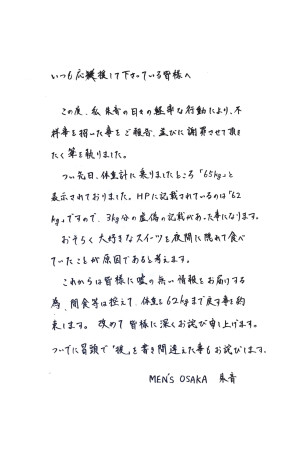 いつも応援援して下さっている皆様へ
この度、私 朱音の日々の軽率な行動により、不
祥事を招いた事をご報告、並びに謝罪させて頂き
たく筆を執りました。
つい先日、体重計に乗りましたところ「65kg」と
表示されておりました。HPに記載されているのは「62
kg」ですので、3kg分の虚偽の記載があった事になります。
おそらく大好きなスイーツを夜間に隠れて食べ
ていたことが原因であると考えます。
これからは皆様に嘘の無い情報をお届けする
為、間食等は控えて、体重を62kgまで戻す事を約
束します。改めて皆様に深くお詫び申し上げます。
ついでに冒頭で「援」を書き間違えた事もお詫びします。
MEN's OSAKA 朱音